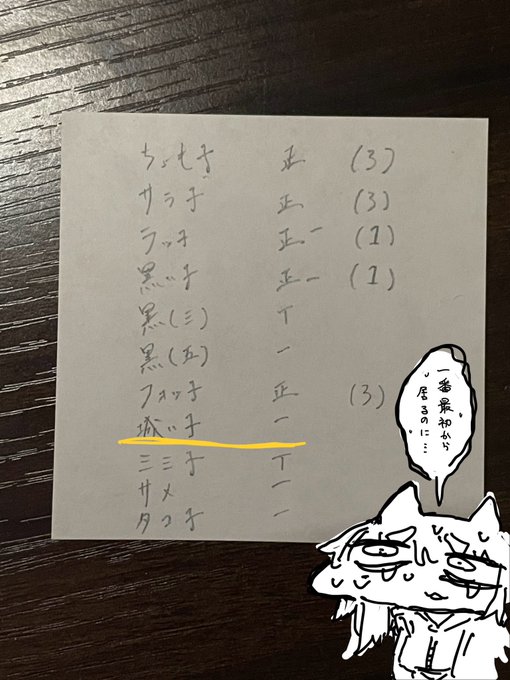 ちょも子 正 (3)
サラ子 正 (3)
ラッ子 正一 (1)
黒ッ子 正一 (1)
黒(三) 丅
黒(五) 一
フォッ子 正 (3)
城ッ子 一
ミミ子 丅
サメ 一
タコ子 一
一番最初から
居るのに…